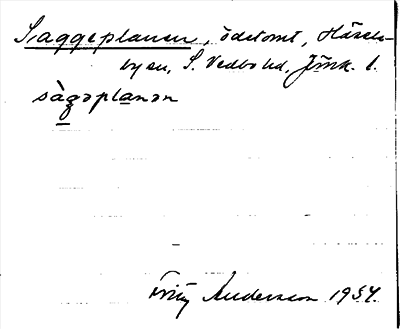 Saggeplanen, ödetomt, Hässle-
byen, S. Vedbo hd, Jönk. l.
sàgəplanən
Fritz Andersson 1934.